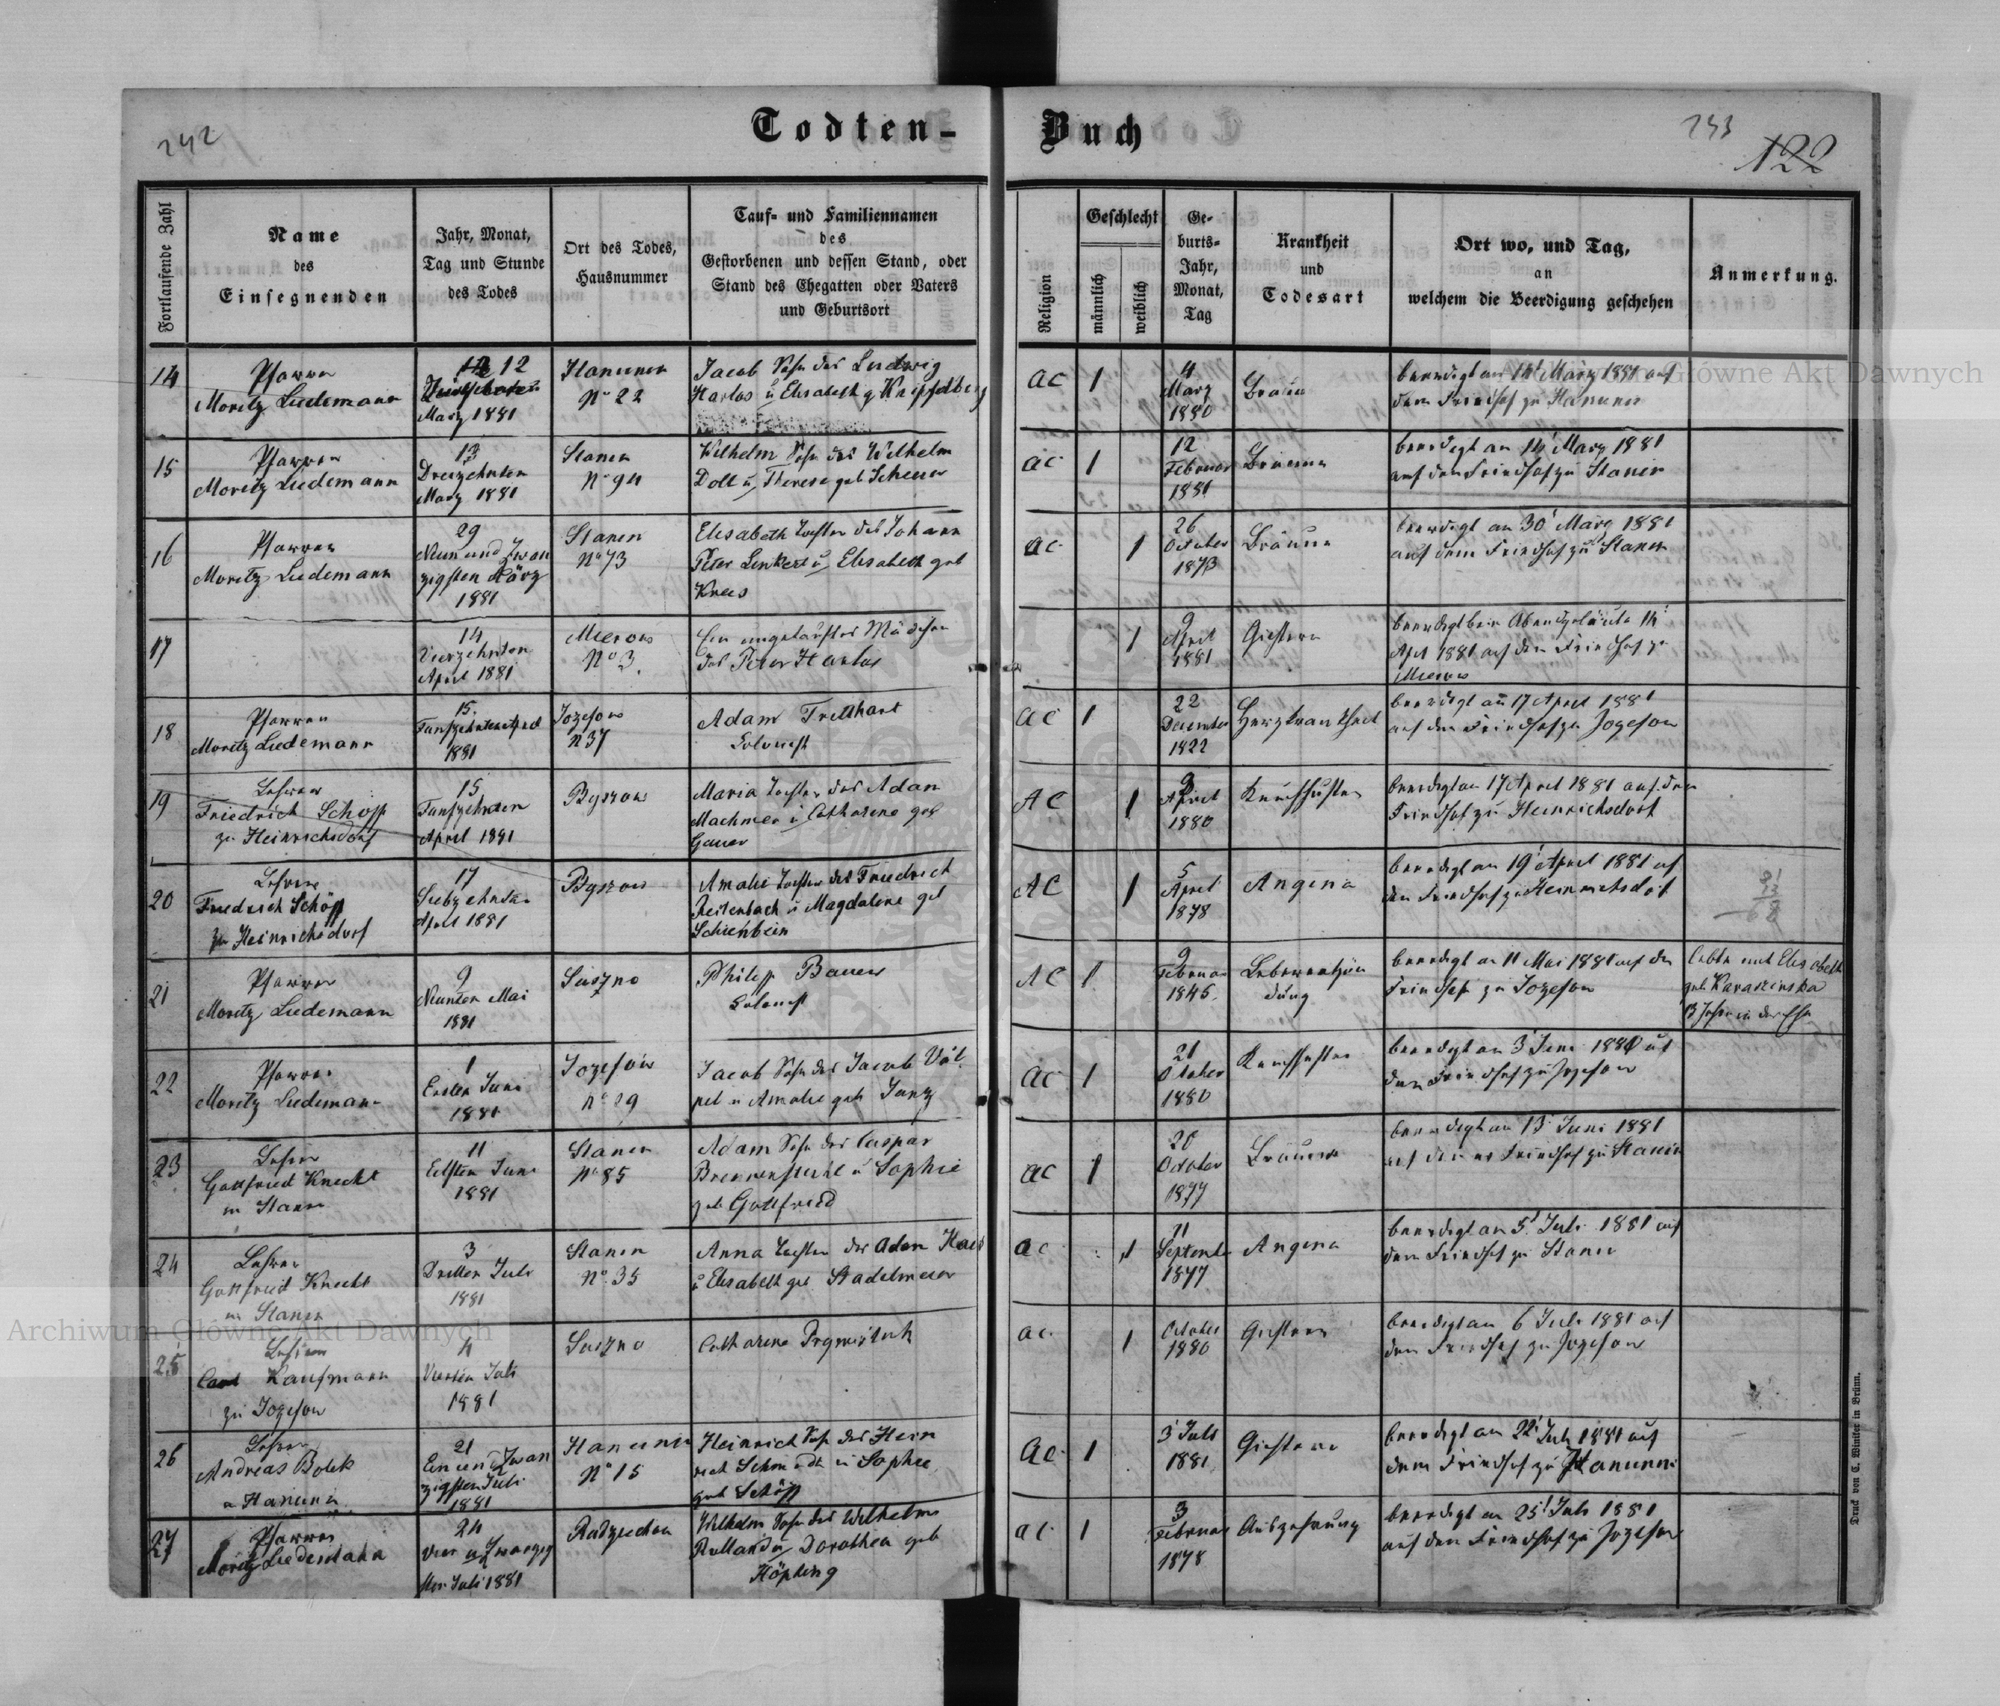 242
Todten-Buch
243
122
Fortlaufende Zahl
Name
des
Einsegnenden
Jahr, Monat,
Tag und Stunde
des Todes
Ort des Todes,
Hausnummer
Tauf- und Familiennamen
des
Gestorbenen und dessen Stand, oder
Stand des Ehegatten oder Vaters
und Geburtsort
Religion
Geschlecht
männlich
weiblich
Ge-
burts-
Jahr,
Monat,
Tag
Krankheit
und
Todesart
Ort wo, und Tag,
an
welchem die Beerdigung geschehen
Anmerkung.
14
Pfarrer
Moritz Liedemann
12
März 1881
Hanunin
No 22
Jacob Sohn des Ludwig
Harlos u Elisabeth g
ac
1
4
März
1880
Bräune
beerdigt am 14 März 1881 auf
dem Friedhof zu Hanunin
15
Pfarrer
Moritz Liedemann
13
Dreizehnten
März 1881
Stanin
No 94
Wilhelm Sohn des Wilhelm
Doll u Therese geb Scheuer
ac
1
12
Februar
1881
Bräune
beerdigt am 14 März 1881
auf dem Friedhof zu Stanin
16
Pfarrer
Moritz Liedemann
29
Neun und Zwan
zigsten März
1881
Stanin
No 73
Elisabeth Tochter des Johann
Peter Linkert u Elisabeth geb
Krebs
ac
1
26
October
1873
Bräune
beerdigt am 30 März 1881
auf dem Friedhof zu Stanin
17
14
Vierzehnten
April 1881
Mierow
No 3
Ein ungetauftes Mädchen
des Peter Harlos
1
9
April
1881
Gichtern
beerdigt beim Abendgeläute 14
April 1881 auf dem Friedhof zu
Mierow
18
Pfarrer
Moritz Liedemann
15.
Fünfzehnten April
1881
Jozefow
N 37
Adam
Colonist
ac
1
22
December
1822
Herzkrankheit
beerdigt am 17 April 1881
auf dem Friedhof zu Jozefow
19
Lehrer
Friedrich Schöpp
zu Heinrichsdorf
15
Fünfzehnten
April 1881
Byszow
Maria Tochter des Adam
Machmer u Catharine geb
Gauer
AC
1
April
1880
Keuchhusten
beerdigt am 17 April 1881 auf dem
Friedhof zu Heinrichsdorf
20
Lehrer
Friedrich Schöpp
zu Heinrichsdorf
17
Siebzehnten
April 1881
Byszow
Amalie Tochter des Friedrich
Reitenbach u Magdalene geb
Schienbein
AC
1
5
April
1878
Angina
beerdigt am 19 April 1881 auf
dem Friedhof zu Heinrichsdorf
21
Pfarrer
Moritz Liedemann
9
Neunten Mai
1881
Suszno
Philipp Bauer
Colonist
AC
1
9
Februar
1845
Leberentzün
dung
beerdigt am 11 Mai 1881 auf dem
Friedhof zu Jozefow
lebte mit Elisabeth
geb Karasinska
13 Jahre in der Ehe
22
Pfarrer
Moritz Liedemann
1
Ersten Juni
1881
Jozefow
No 29
Jacob Sohn des Jacob Völ
pel u Amalie geb Janz
ac
1
21
October
1880
Keuchhusten
beerdigt am 3 Juni auf
dem Friedhof zu Jozefow
23
Lehrer
Gottfried Knecht
in Stanin
11
Eilften Juni
1881
Stanin
No 85
Adam Sohn des Caspar
Brennenstuhl u Sophie
geb Gottfried
ac
1
20
October
1877
Bräune
beerdigt am 13 Juni 1881
auf dem Friedhof zu Stanin
24
Lehrer
Gottfried Knecht
in Stanin
3
Dritten Juli
1881
Stanin
No 35
Anna Tochter des Adam
u Elisabeth geb Stadelmeier
ac
1
11
September
1877
Angina
beerdigt am 5 Juli 1881 auf
dem Friedhof zu Stanin
25
Lehrer
Kaufmann
zu Jozefow
4
Vierten Juli
1881
Suszno
Catharine
ac
1
October
1880
Gichtern
beerdigt am 6 Juli 1881 auf
dem Friedhof zu Jozefow
26
Lehrer
Andreas Bolek
Hanunin
21
Ein und Zwan
zigsten Juli
1881
Hanunin
No 15
Heinrich Sohn des Hein
rich Schmidt u Sophie
geb Schöpp
ac
1
3 Juli
1881
Gichtern
beerdigt am 22 Juli 1881 auf
dem Friedhof zu Hanunin
27
Pfarrer
Moritz Liedemann
24
Vier u Zwanzig
sten Juli 1881
Radziechow
Wilhelm Sohn des Wilhelm
Rolland u Dorothea geb
Höpking
ac
1
3
Februar
1878
Auszehrung
beerdigt am 25 Juli 1881
auf dem Friedhof zu Jozefow
Druck von C. Winiker in Brünn.
Archiwum Główne Akt Dawnych
Archiwum Główne Akt Dawnych